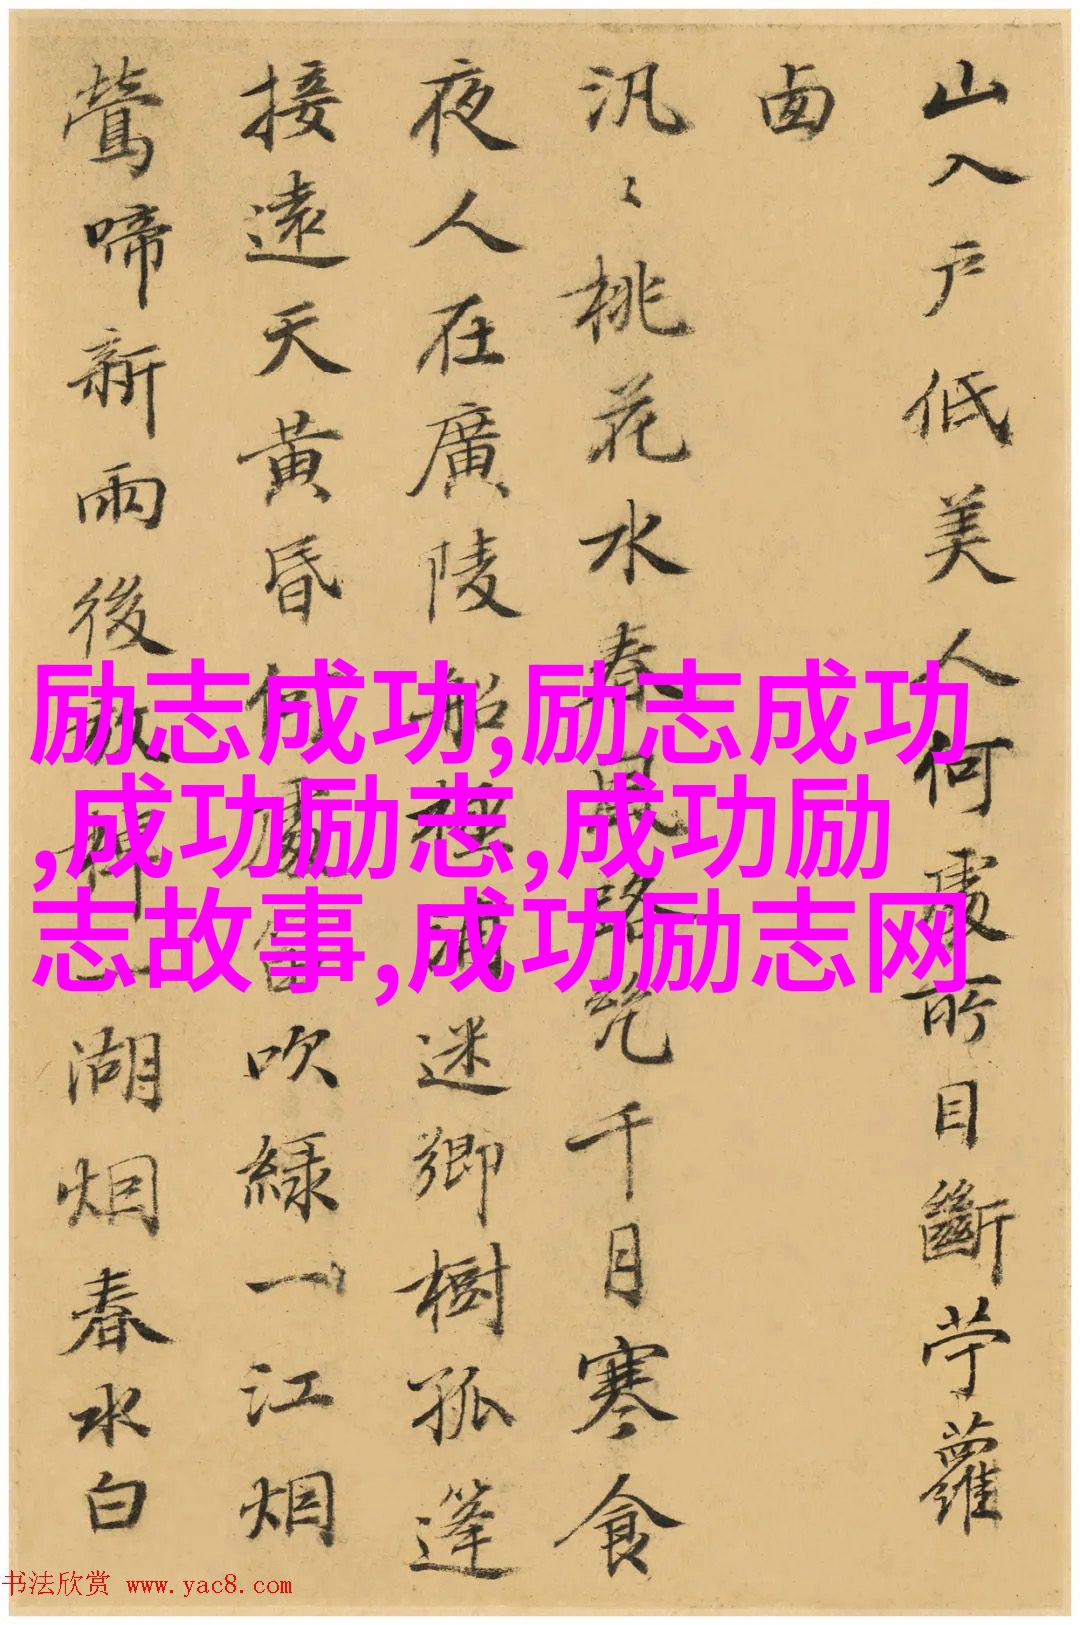 山入戶低美人何處所目斷苧蘿
西
汎〻桃花水春風路絶千月寒食
夜人在廣陵船極浦迷鄉樹孤篷
接遠天黃昏何處吹綠一江烟
鶯啼新雨後湖烟春水白
励志成功,励志成功
,成功励志,成功励
志故事,成功励志网
书法欣赏 www.yac8.com